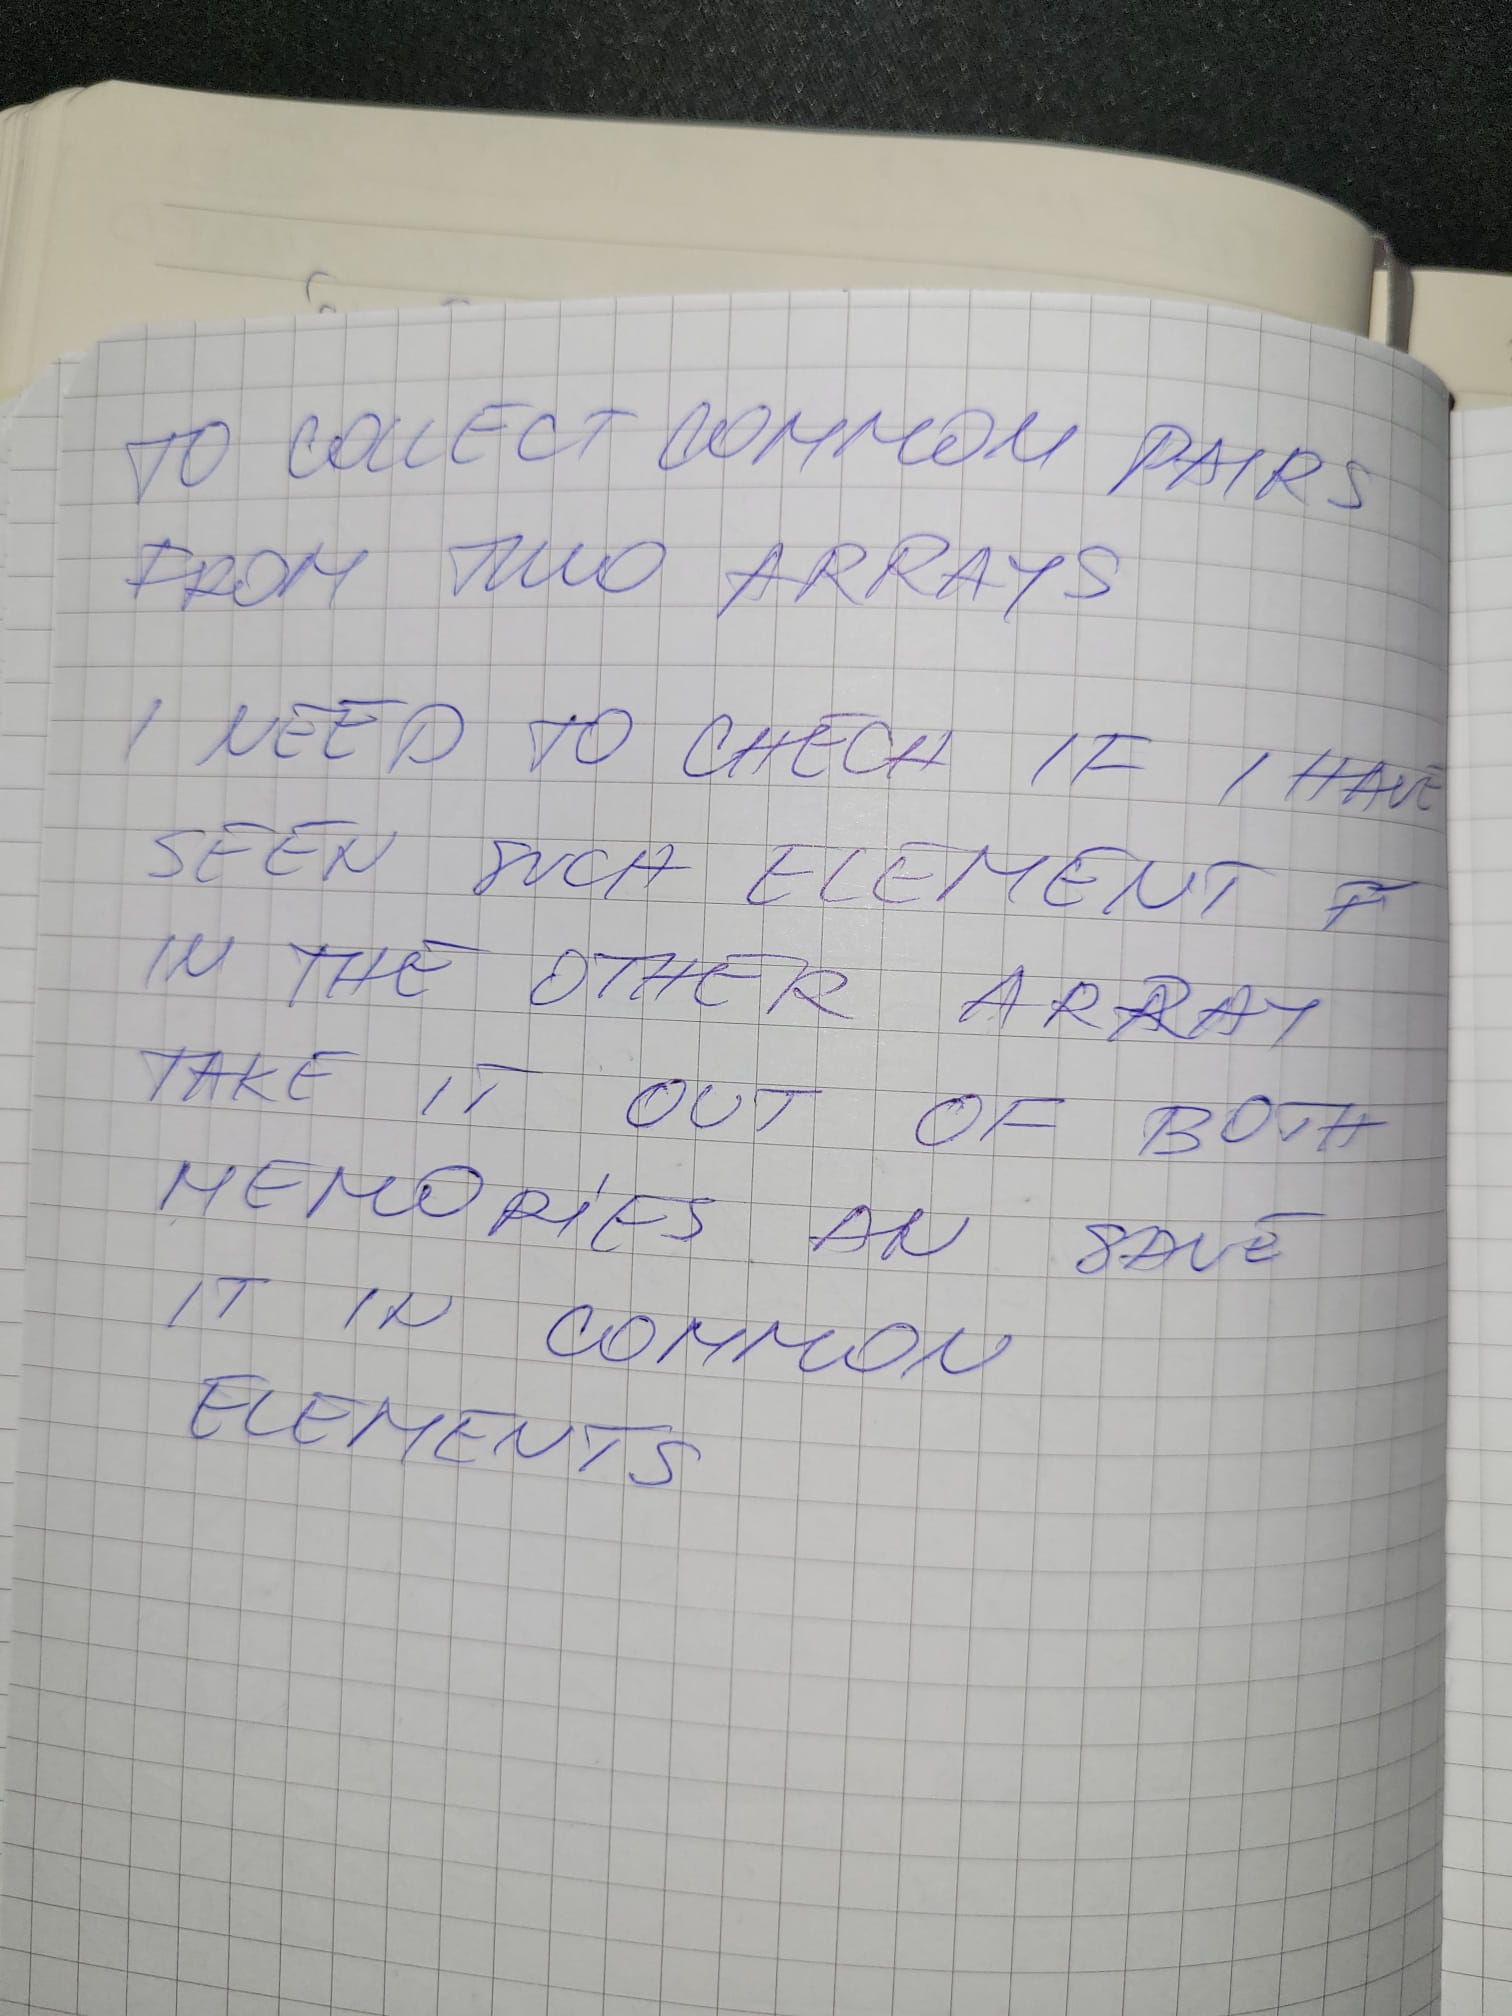 TO COLLECT COMMON PAIRS
FROM TWO ARRAYS
I NEED TO CHECH IF I HAVE
SEEN SUCH ELEMENT
IN THE OTHER ARRAY
TAKE IT OUT OF BOTH
MEMORIES AN SAVE
IT IN COMMON
ELEMENTS